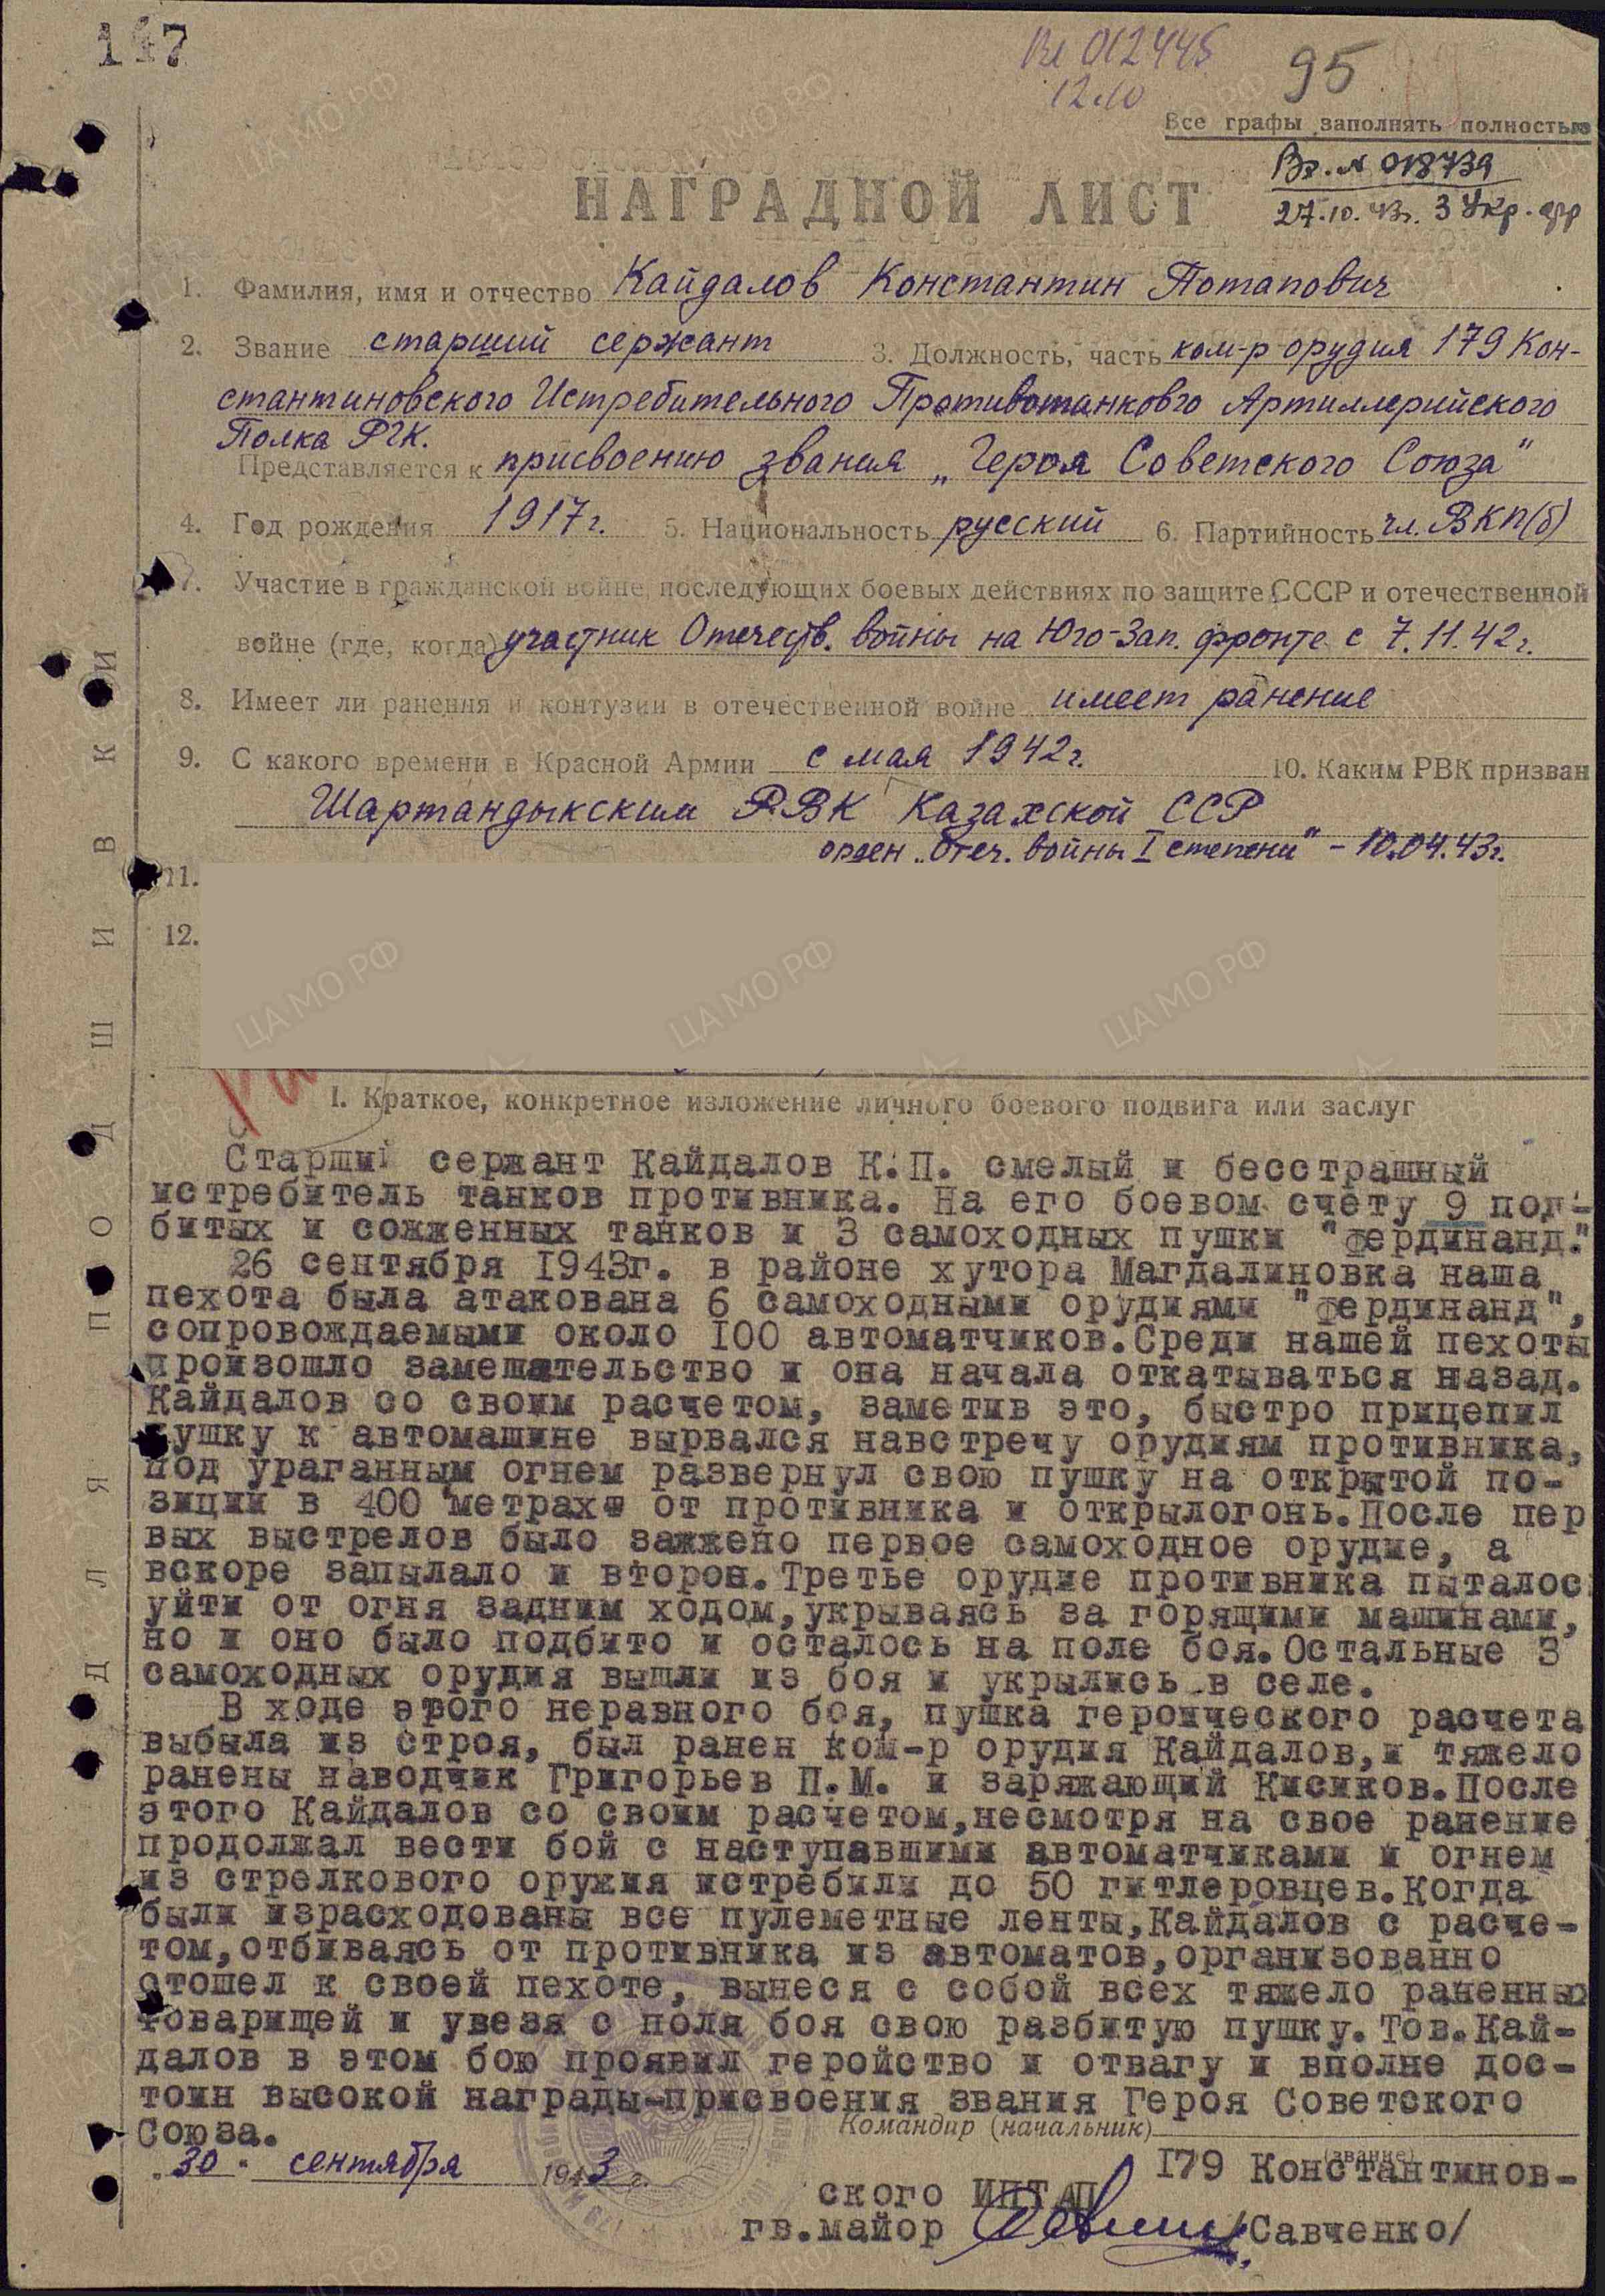 147
Вх 012445
12.10
95
Все графы заполнять полностью
Вх. № 018739
27.10.43г. 3 Укр. фр
НАГРАДНОЙ ЛИСТ
1. Фамилия, имя и отчество Кайдалов Константин Потапович
2. Звание старший сержант 3. Должность, часть ком-р орудия 179 Кон-
стантиновского Истребительного Противотанковго Артиллерийского
Полка РГК.
Представляется к присвоению звания „Героя Советского Союза"
4. Год рождения 1917г. 5. Национальность русский 6. Партийность чл. ВКП(б)
7. Участие в гражданской войне, последующих боевых действиях по защите СССР и отечественной
войне (где, когда) участник Отечеств. войны на Юго-Зап. фронте с 7.11.42г.
8. Имеет ли ранения и контузии в отечественной войне имеет ранение
9. С какого времени в Красной Армии с мая 1942г. 10. Каким РВК призван
Шартандыкским РВК Казахской ССР
орден „Отеч. войны I степени" - 10.04.43г.
11.
12.
I. Краткое, конкретное изложение личного боевого подвига или заслуг
Старший сержант Кайдалов К.П. смелый и бесстрашный
истребитель танков противника. На его боевом счету 9 под-
битых и сожженных танков и 3 самоходных пушки "фердинанд".
26 сентября 1943г. в районе хутора Магдалиновка наша
пехота была атакована 6 самоходными орудиями "фердинанд",
сопровождаемыми около 100 автоматчиков.Среди нашей пехоты
произошло замешательство и она начала откатываться назад.
Кайдалов со своим расчетом, заметив это, быстро прицепил
пушку к автомашине вырвался навстречу орудиям противника,
под ураганным огнем развернул свою пушку на открытой по-
зиции в 400 метрах от противника и открылогонь.После пер
вых выстрелов было зажжено первое самоходное орудие, а
вскоре запылало и второе.Третье орудие противника пыталос
уйти от огня задним ходом,укрываясь за горящими машинами,
но и оно было подбито и осталось на поле боя.Остальные 3
самоходных орудия вышли из боя и укрылись в селе.
В ходе этого неравного боя, пушка героического расчета
выбыла из строя, был ранен ком-р орудия Кайдалов,и тяжело
ранены наводчик Григорьев П.М. и заряжающий Кисиков.После
этого Кайдалов со своим расчетом,несмотря на свое ранение
продолжал вести бой с наступавшими автоматчиками и огнем
из стрелкового оружия истребили до 50 гитлеровцев.Когда
были израсходованы все пулеметные ленты,Кайдалов с расче-
том,отбиваясь от противника из автоматов,организованно
отошел к своей пехоте, вынеся с собой всех тяжело раненных
товарищей и увезя с поля боя свою разбитую пушку.Тов.Кай-
далов в этом бою проявил геройство и отвагу и вполне дос-
тоин высокой награды-присвоения звания Героя Советского
Союза.
Командир (начальник)
(звание)
"30" сентября 1943 г.
179 Константинов-
ского ИПТАП
гв.майор /Савченко/
ДЛЯ ПОДШИВКИ
ЦАМО РФ